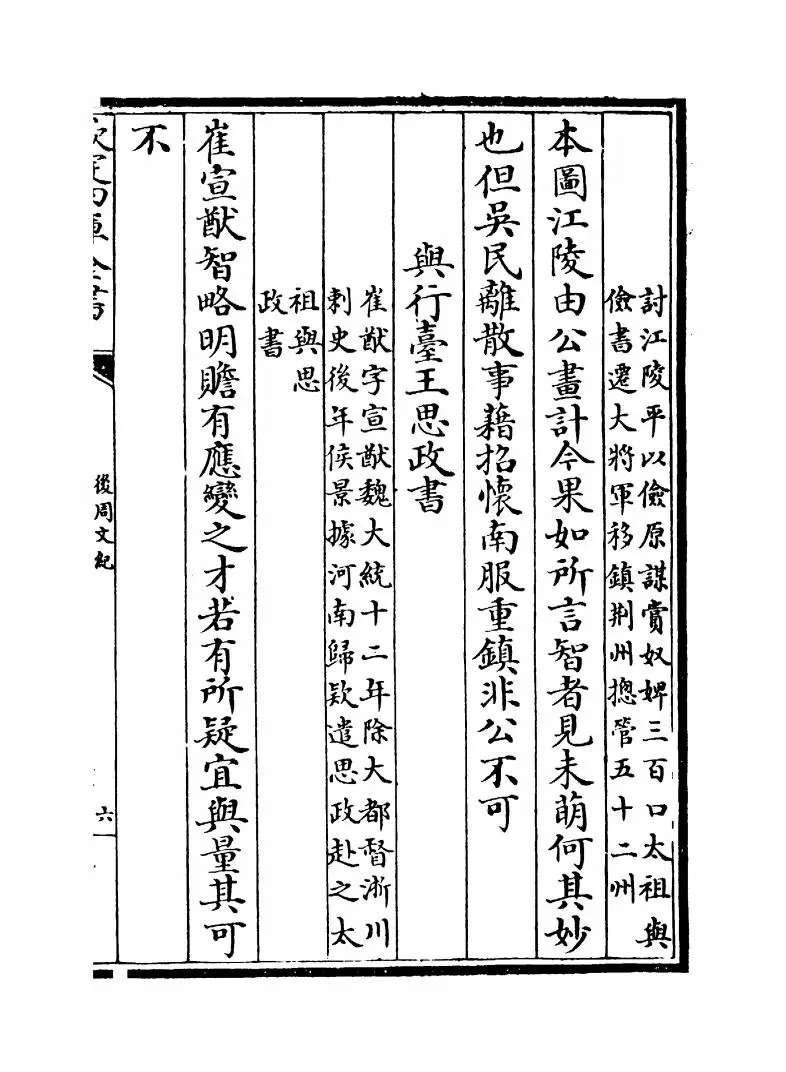 討江陵平以儉原謀賞奴婢三百口太祖與
儉書遷大將軍移鎮荆州揔管五十二州
本圖江陵由公畫計今果如所言智者見未萌何其妙
也但吳民離散事藉招懷南服重鎮非公不可
與行臺王思政書
崔猷字宣猷魏大統十二年除大都督淅川
刺史後年侯景據河南歸欵遣思政赴之太
祖與思
政書
崔宣猷智略明贍有應變之才若有所疑宜與量其可
不
欽定四庫全書
後周文紀
六